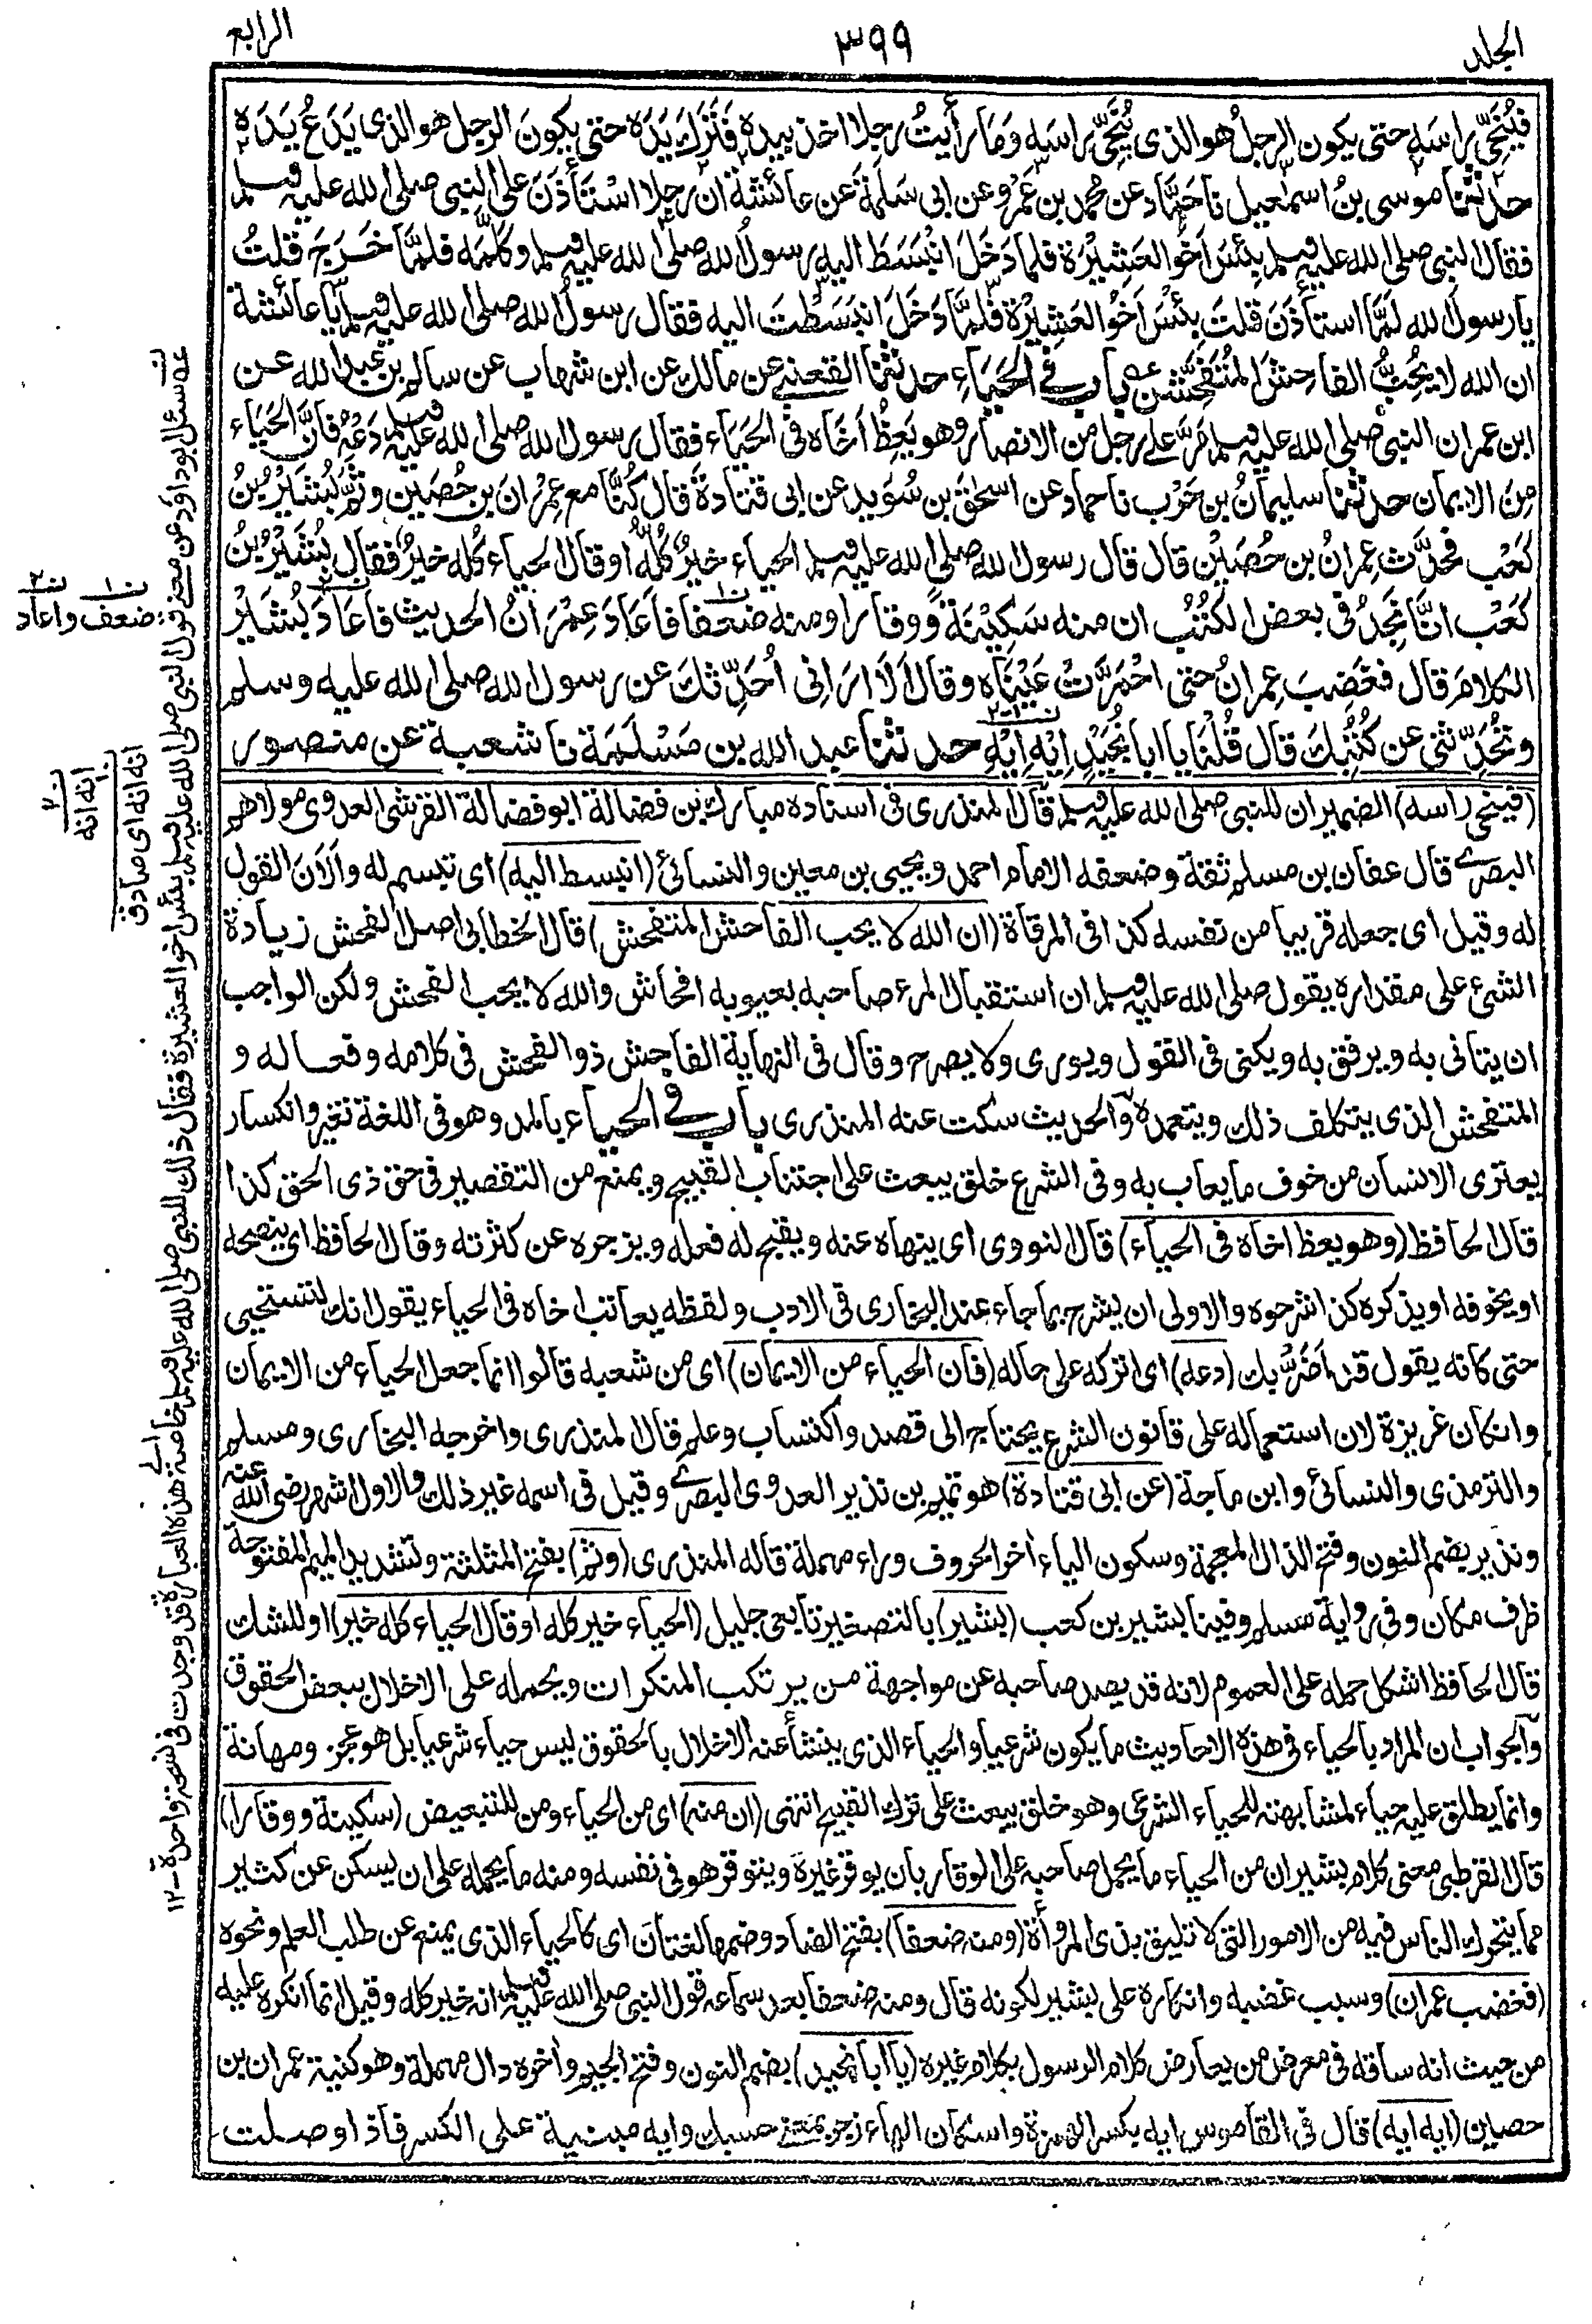 الجلد
٣٩٩
الرابع
فَيُنَحِّيَ رأسَه حتى يكون الرجلُ هو الذى يُنَحِّيَ راسَه وَمَا رأيتُ رجلا اخذ بيده فَتَرَكَ يَدَه حتى يكونَ الرجل هو الذى يَدَعُ يَدَه
حدثنا موسى بنُ اسمٰعيل نا حَمَّاد عن محمد بن عَمْرو عن ابى سَلَمَةَ عن عائشة ان رجلا اسْتَأذَنَ على النبى صلى الله عليه وسلم
فقال النبى صلى الله عليه وسلم بِئسَ اَخُو العَشِيْرَة فلما دَخَلَ انْبَسَطَ اليه رسولُ الله صلى الله عليه وسلم وكلَّمَه فلمَّا خَرَجَ قلتُ
يا رسول الله لَمَّا استأذَنَ قلتَ بِئسَ اَخُو العَشِيْرَة فلمَّا دَخَلَ انْبَسَطْتَ اليه فقال رسولُ الله صلى الله عليه وسلم يا عائشة
ان الله لا يُحِبُّ الفاحِشَ المُتَفَحِّشَ باب فى الحَيَاء حدثنا القعنبى عن مالك عن ابن شهاب عن سالم بن عبد الله عن
ابن عمر ان النبى صلى الله عليه وسلم مَرَّ على رجل من الانصار وهو يَعِظُ اَخَاه فى الحَيَاء فقال رسول الله صلى الله عليه وسلم دَعْهُ فَانَّ الحَيَاء
مِنَ الايمان حدثنا سليمانُ بن حَرْب نا حماد عن اسحٰق بن سُوَيد عن ابى قَتَادَةَ قال كُنَّا مع عِمْرَان بن حُصَين وثَمَّ بُشَيْرُ بنُ
كَعْب فحَدَّث عِمرانُ بن حُصَيْن قال قال رسول الله صلى الله عليه وسلم الحياء خيرٌ كُلُّه او قال الحياء كُله خيرٌ فقال بُشَيْرُ بنُ
كَعْب انَّا نَجِدُ فى بعض الكُتُب ان منه سَكِيْنَةً ووقارا ومنه ضعفا فاَعَادَ عِمْرَانُ الحديث فاعَادَ بُشَيْر
الكلامَ قال فغَضِبَ عِمرانُ حتى احْمَرَّتْ عَيْنَاه وقال اَلَا ارَانى اُحَدِّثكَ عن رسول الله صلى الله عليه وسلم
وتُحَدِّثنى عن كُتُبِكَ قال قُلْنَا يا ابا نُجَيْد اِيْهِ اِيْهِ حدثنا عبد الله بن مَسْلَمَة نا شعبة عن منصور
(فينحى راسه) الضميران للنبى صلى الله عليه وسلم قال المنذرى فى اسناده مبارك بن فضالة ابو فضالة القرشى العدوى مولاهم
البصرى قال عفان بن مسلم ثقة وضعفه الامام احمد ويحيى بن معين والنسائى (انبسط اليه) اى تبسم له والان القول
له وقيل اى جعله قريبا من نفسه كذا فى المرقاة (ان الله لا يحب الفاحش المتفحش) قال الخطابى اصل الفحش زيادة
الشئ على مقداره يقول صلى الله عليه وسلم ان استقبال المرء صاحبه بعيوبه افحاش والله لا يحب الفحش ولكن الواجب
ان يتانى به ويرفق به ويكنى فى القول ويورى ولا يصرح وقال فى النهاية الفاحش ذو الفحش فى كلامه وفعاله و
المتفحش الذى يتكلف ذلك ويتعمده والحديث سكت عنه المنذرى باب فى الحياء بالمد وهو فى اللغة تغير وانكسار
يعترى الانسان من خوف ما يعاب به وفى الشرع خلق يبعث على اجتناب القبيح ويمنع من التقصير فى حق ذى الحق كذا
قال الحافظ (وهو يعظ اخاه فى الحياء) قال النووى اى ينهاه عنه ويقبح له فعله ويزجره عن كثرته وقال الحافظ اى ينصحه
او يخوفه او يذكره كذا شرحوه والاولى ان يشرح بما جاء عند البخارى فى الادب ولفظه يعاتب اخاه فى الحياء يقول انك لتستحيى
حتى كانه يقول قد اَضَرَّ بك (دعه) اى اتركه على حاله (فان الحياء من الايمان) اى من شعبه قالوا انما جعل الحياء من الايمان
وانكان غريزة لان استعماله على قانون الشرع يحتاج الى قصد واكتساب وعلم قال المنذرى واخرجه البخارى ومسلم
والترمذى والنسائى وابن ماجة (عن ابى قتادة) هو تميم بن نذير العدوى البصرى وقيل فى اسمه غير ذلك والاول اشهر رضى الله عنه
ونذير بضم النون وفتح الذال المعجمة وسكون الياء اخر الحروف وراء مهملة قاله المنذرى (وثم) بفتح المثلثة وتشديد الميم المفتوحة
ظرف مكان وفى رواية مسلم وفينا بشير بن كعب (بشير) بالتصغير تابعى جليل (الحياء خير كله او قال الحياء كله خير) او للشك
قال الحافظ اشكل حمله على العموم لانه قد يصد صاحبه عن مواجهة من يرتكب المنكرات ويحمله على الاخلال ببعض الحقوق
والجواب ان المراد بالحياء فى هذه الاحاديث ما يكون شرعيا والحياء الذى ينشأ عنه الاخلال بالحقوق ليس حياء شرعيا بل هو عجز ومهانة
وانما يطلق عليه حياء لمشابهته للحياء الشرعى وهو خلق يبعث على ترك القبيح انتهى (ان منه) اى من الحياء ومن للتبعيض (سكينة ووقارا)
قال القرطبى معنى كلام بشير ان من الحياء ما يحمل صاحبه على الوقار بان يوقر غيره ويتوقر هو فى نفسه ومنه ما يحمله على ان يسكن عن كثير
مما يتحرك الناس فيه من الامور التى لا تليق بذى المروأة (ومنه ضعفا) بفتح الضاد وضمها لغتان اى كالحياء الذى يمنع عن طلب العلم ونحوه
(فغضب عمران) وسبب غضبه وانكاره على بشير لكونه قال ومنه ضعفا بعد سماعه قول النبى صلى الله عليه وسلم انه خير كله وقيل انما انكره عليه
من حيث انه ساقه فى معرض من يعارض كلام الرسول بكلام غيره (يا ابا نجيد) بضم النون وفتح الجيم واخره دال مهملة وهو كنية عمران بن
حصين (ايه ايه) قال فى القاموس ايه بكسر الهمزة واسكان الهاء زجر بمعنى حسبك وايه مبنية على الكسر فاذا وصلت
سئل ابو داؤد عن معنى قول النبى صلى الله عليه وسلم بئس اخو العشيرة فقال ذلك للنبى صلى الله عليه وسلم خاصة هذه العبارة قد وجدت فى نسخة واحدة ١٢
ضعف واعاد
انه انه اى صادق
ايه انه